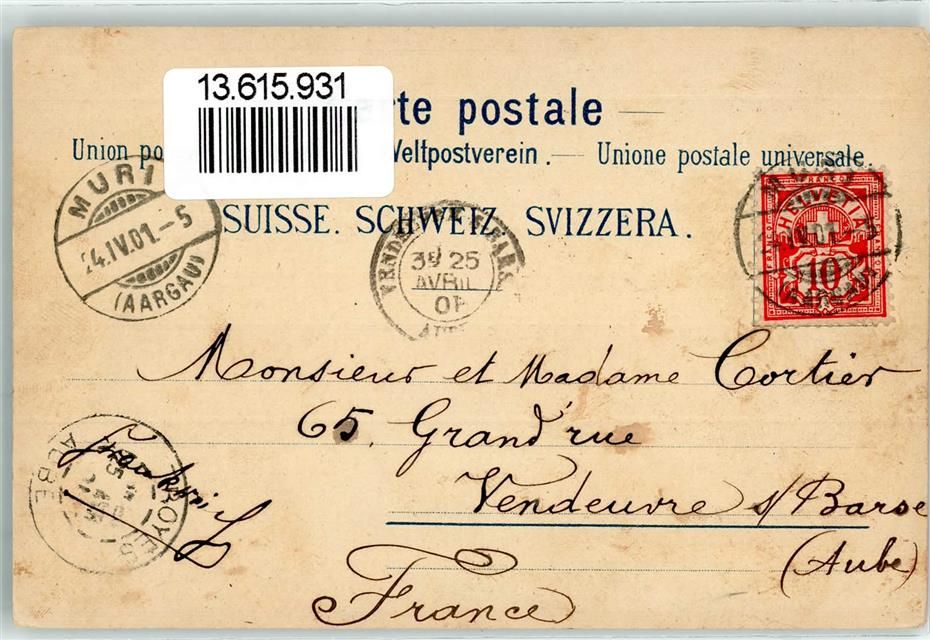 13.615.931
rte postale
Union po Weltpostverein. — Unione postale universale.
SUISSE. SCHWEIZ. SVIZZERA.
MURI
24.IV.01.-5
(AARGAU)
25
AVRIL
01
HELVETIA
10
Monsieur et Madame Cortier
65. Grand'rue
Vendeuvre s/ Barse
(Aube)
France
TROYES
AUBE